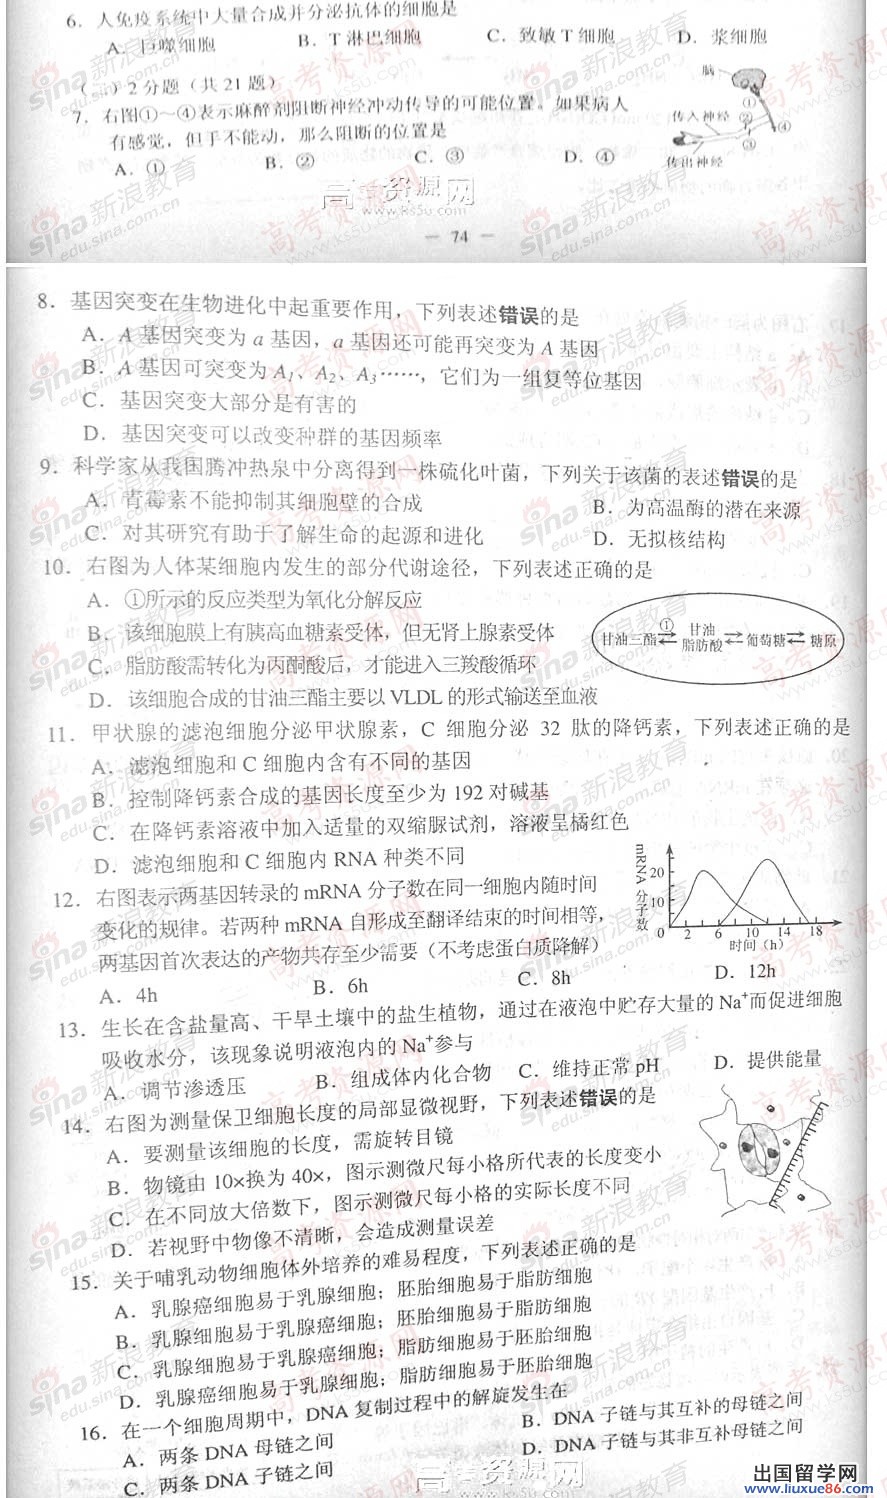 6．人免疫系统中大量合成并分泌抗体的细胞是
A．巨噬细胞 B．T淋巴细胞 C．致敏T细胞 D．浆细胞
（二）2分题（共21题）
7．右图①～④表示麻醉剂阻断神经冲动传导的可能位置。如果病人
有感觉，但手不能动，那么阻断的位置是
A．① B．② C．③ D．④
脑
①
传入神经
②
③
④
传出神经
高考资源网
www.ks5u.com
— 74 —
8．基因突变在生物进化中起重要作用，下列表述错误的是
A．A基因突变为a基因，a基因还可能再突变为A基因
B．A基因可突变为A1、A2、A3……，它们为一组复等位基因
C．基因突变大部分是有害的
D．基因突变可以改变种群的基因频率
9．科学家从我国腾冲热泉中分离得到一株硫化叶菌，下列关于该菌的表述错误的是
A．青霉素不能抑制其细胞壁的合成 B．为高温酶的潜在来源
C．对其研究有助于了解生命的起源和进化 D．无拟核结构
10．右图为人体某细胞内发生的部分代谢途径，下列表述正确的是
A．①所示的反应类型为氧化分解反应
B．该细胞膜上有胰高血糖素受体，但无肾上腺素受体
C．脂肪酸需转化为丙酮酸后，才能进入三羧酸循环
D．该细胞合成的甘油三酯主要以VLDL的形式输送至血液
甘油三酯 ① 甘油 脂肪酸 葡萄糖 糖原
11．甲状腺的滤泡细胞分泌甲状腺素，C 细胞分泌 32 肽的降钙素，下列表述正确的是
A．滤泡细胞和C细胞内含有不同的基因
B．控制降钙素合成的基因长度至少为192对碱基
C．在降钙素溶液中加入适量的双缩脲试剂，溶液呈橘红色
D．滤泡细胞和C细胞内RNA种类不同
12．右图表示两基因转录的mRNA分子数在同一细胞内随时间
变化的规律。若两种mRNA自形成至翻译结束的时间相等，
两基因首次表达的产物共存至少需要（不考虑蛋白质降解）
A．4h B．6h C．8h D．12h
mRNA分子数
20
10
0 2 6 10 14 18
时间（h）
13．生长在含盐量高、干旱土壤中的盐生植物，通过在液泡中贮存大量的Na+而促进细胞
吸收水分，该现象说明液泡内的Na+参与
A．调节渗透压 B．组成体内化合物 C．维持正常pH D．提供能量
14．右图为测量保卫细胞长度的局部显微视野，下列表述错误的是
A．要测量该细胞的长度，需旋转目镜
B．物镜由10×换为40×，图示测微尺每小格所代表的长度变小
C．在不同放大倍数下，图示测微尺每小格的实际长度不同
D．若视野中物像不清晰，会造成测量误差
15．关于哺乳动物细胞体外培养的难易程度，下列表述正确的是
A．乳腺癌细胞易于乳腺细胞；胚胎细胞易于脂肪细胞
B．乳腺细胞易于乳腺癌细胞；胚胎细胞易于脂肪细胞
C．乳腺细胞易于乳腺癌细胞；脂肪细胞易于胚胎细胞
D．乳腺癌细胞易于乳腺细胞；脂肪细胞易于胚胎细胞
16．在一个细胞周期中，DNA复制过程中的解旋发生在
A．两条DNA母链之间 B．DNA子链与其互补的母链之间
C．两条DNA子链之间 D．DNA子链与其非互补母链之间
高考资源网
出国留学网
www.liuxue86.com
sina新浪教育
edu.sina.com.cn